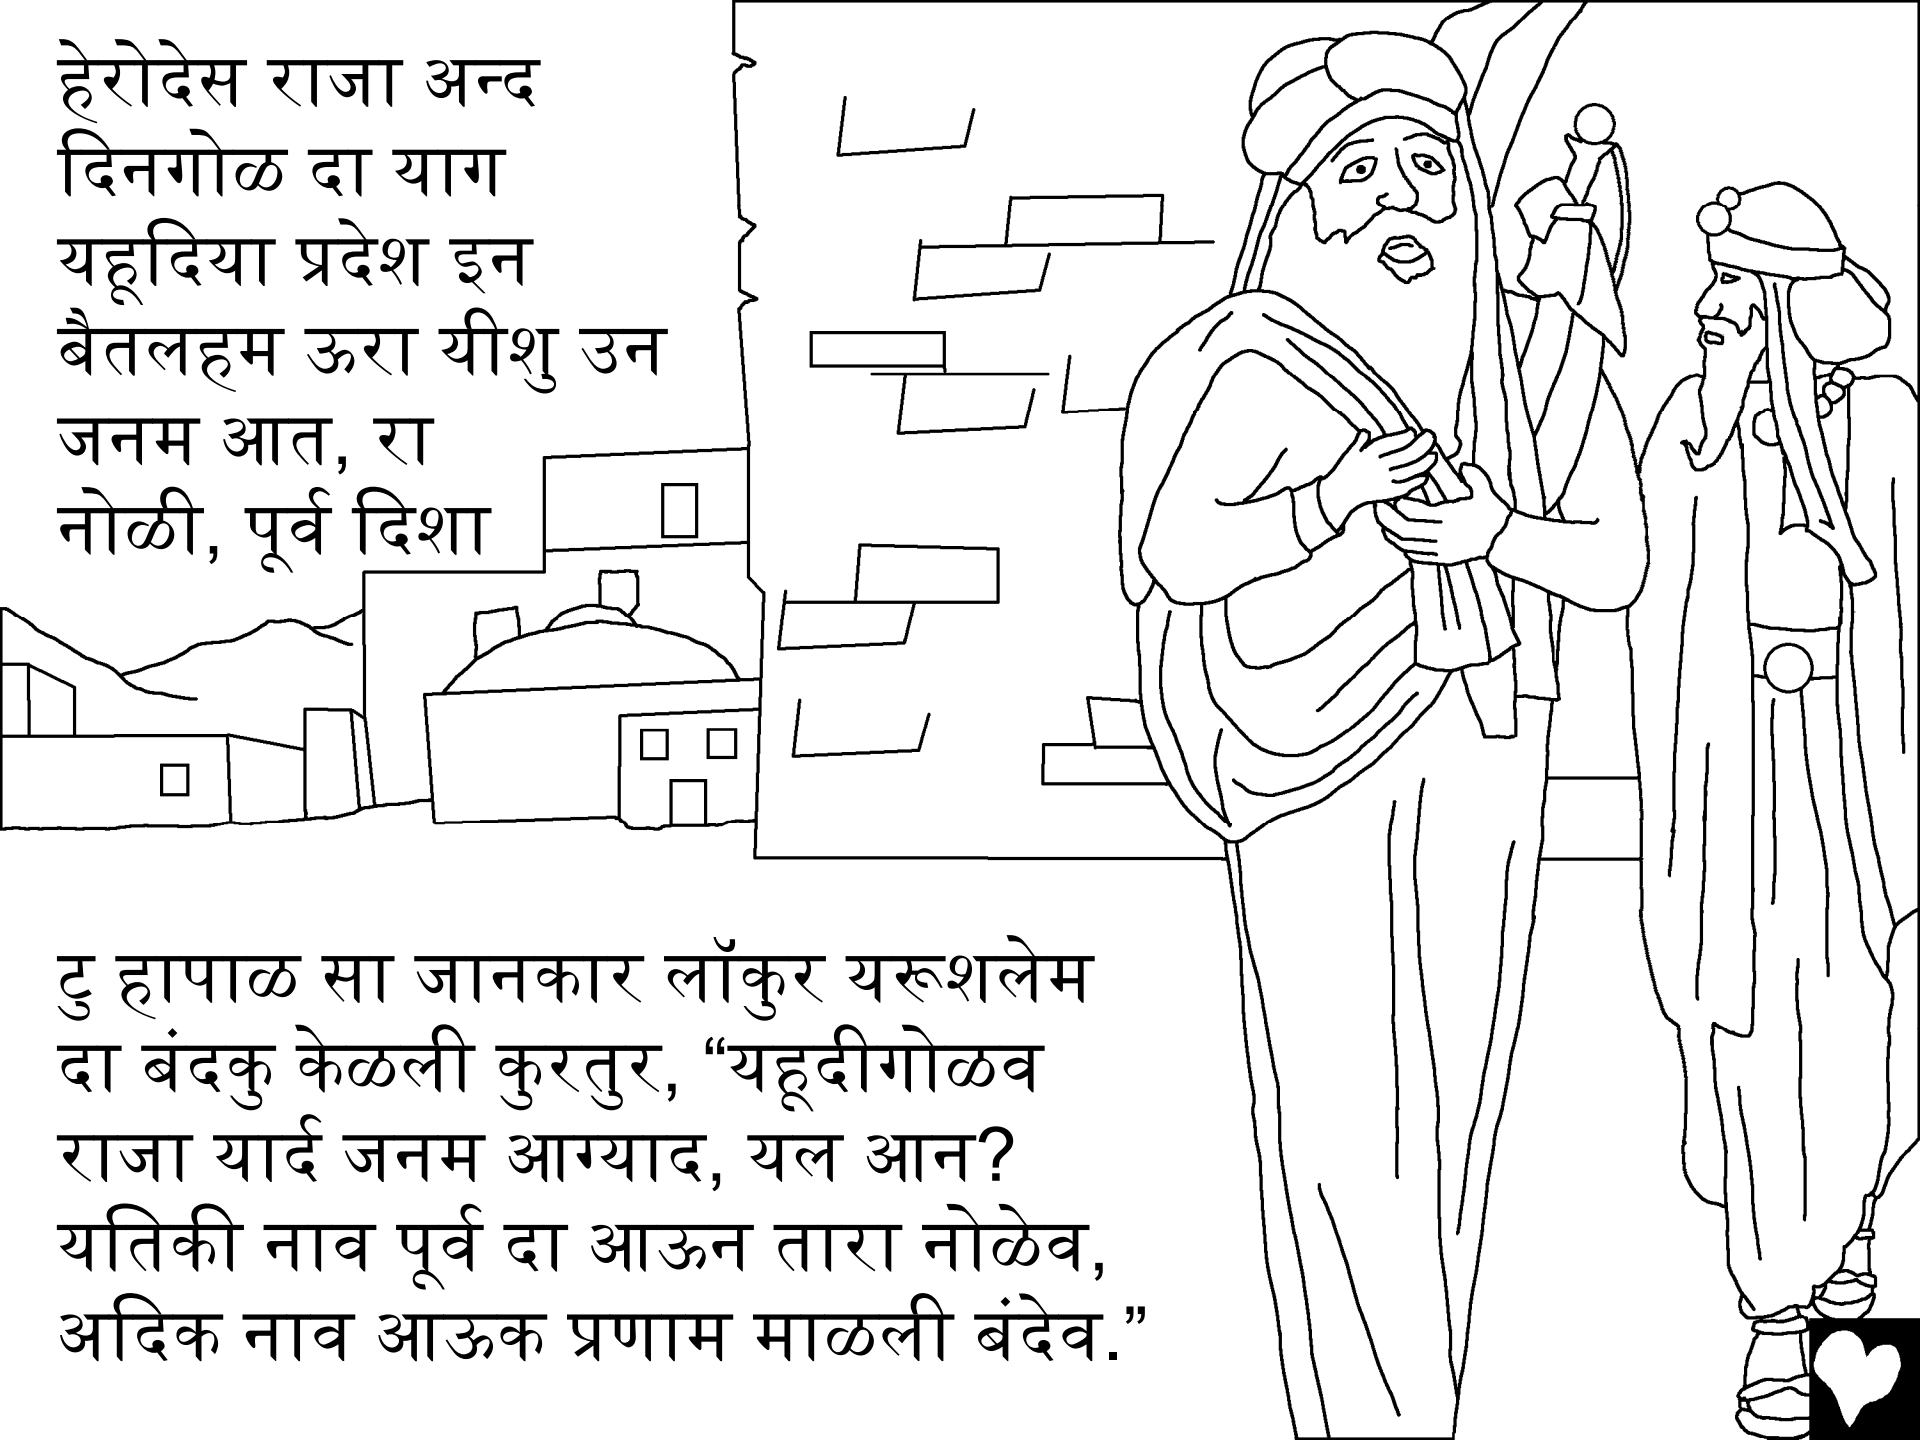 हेरोदेस राजा अन्द
दिनगोळ दा याग
यहूदिया प्रदेश इन
बैतलहम ऊरा यीशु उन
जनम आत, रा
नोळी, पूर्व दिशा
टु हापाळ सा जानकार लॉकुर यरूशलेम
दा बंदकु केळली कुरतुर, “यहूदीगोळव
राजा यार्द जनम आग्याद, यल आन?
यतिकी नाव पूर्व दा आऊन तारा नोळेव,
अदिक नाव आऊक प्रणाम माळली बंदेव.”